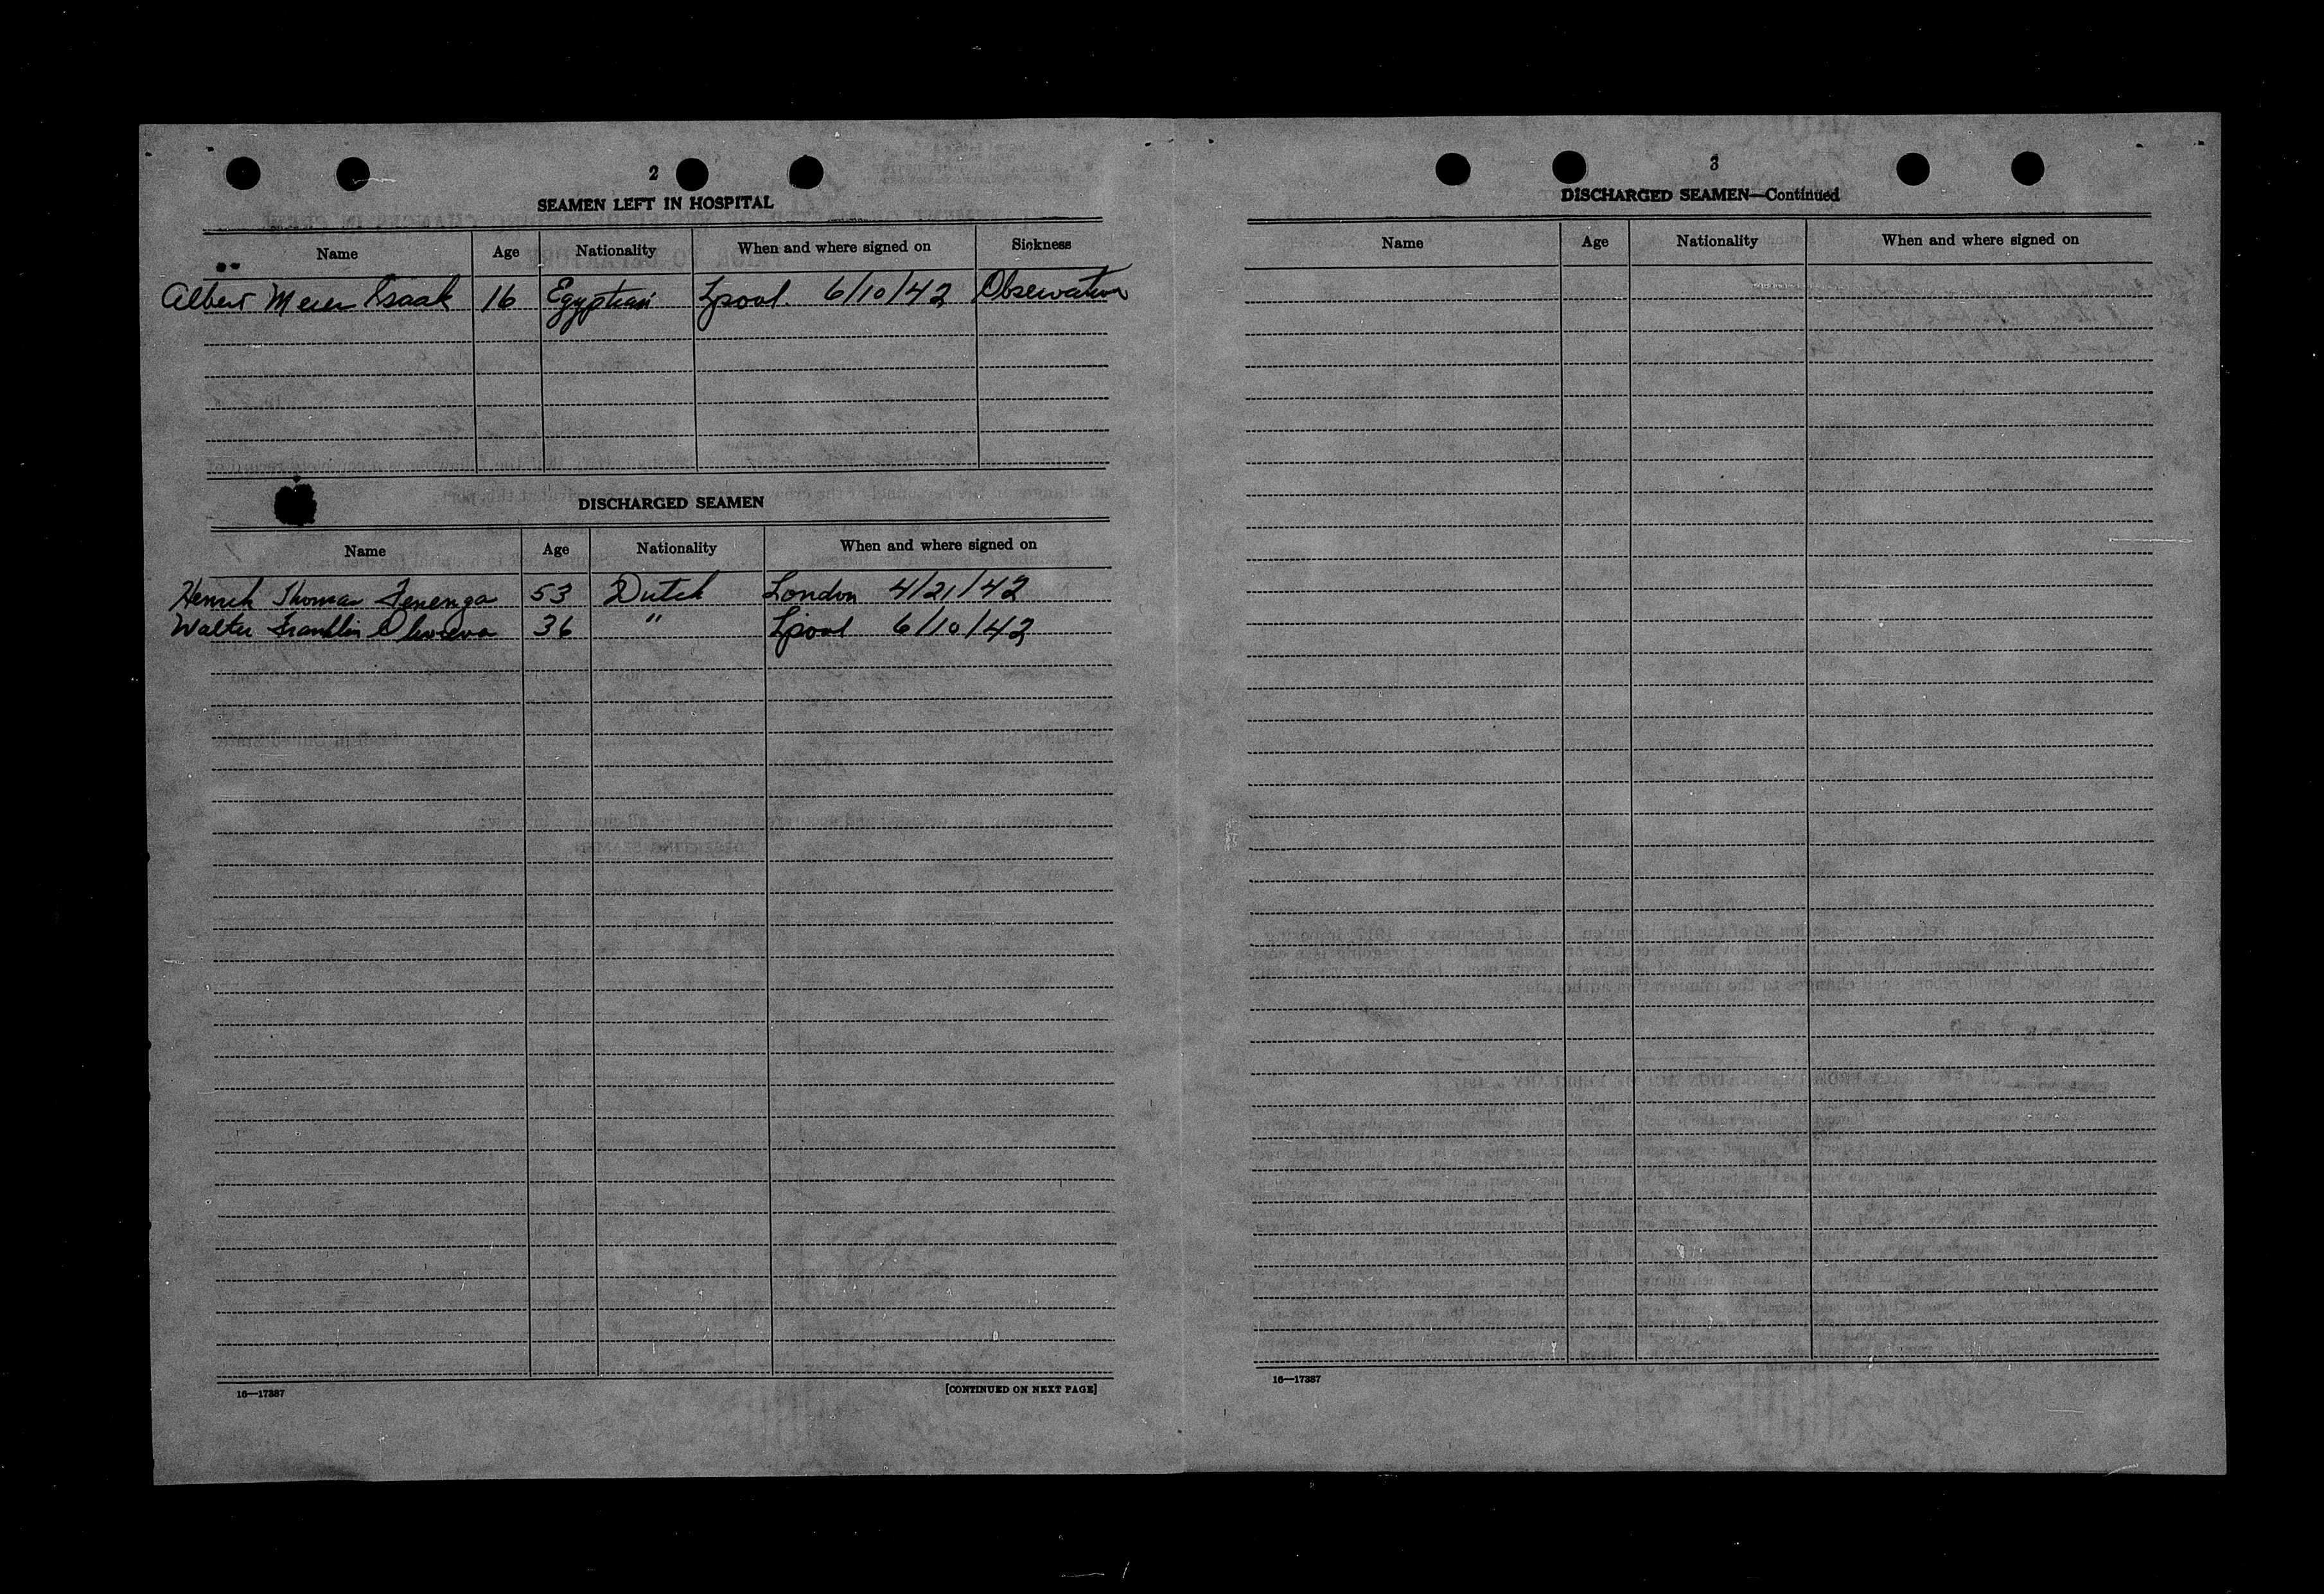 2
SEAMEN LEFT IN HOSPITAL
Name Age Nationality When and where signed on Sickness
Albert Meier Isaak 16 Egyptian Lpool. 6/10/42 Observation
DISCHARGED SEAMEN
Name Age Nationality When and where signed on
Henrik Thomas Fenenga 53 Dutch London 4/21/42
Walter Franklin 36 " Lpool 6/10/42
16—17387 [CONTINUED ON NEXT PAGE]
3
DISCHARGED SEAMEN—Continued
Name Age Nationality When and where signed on
16—17387